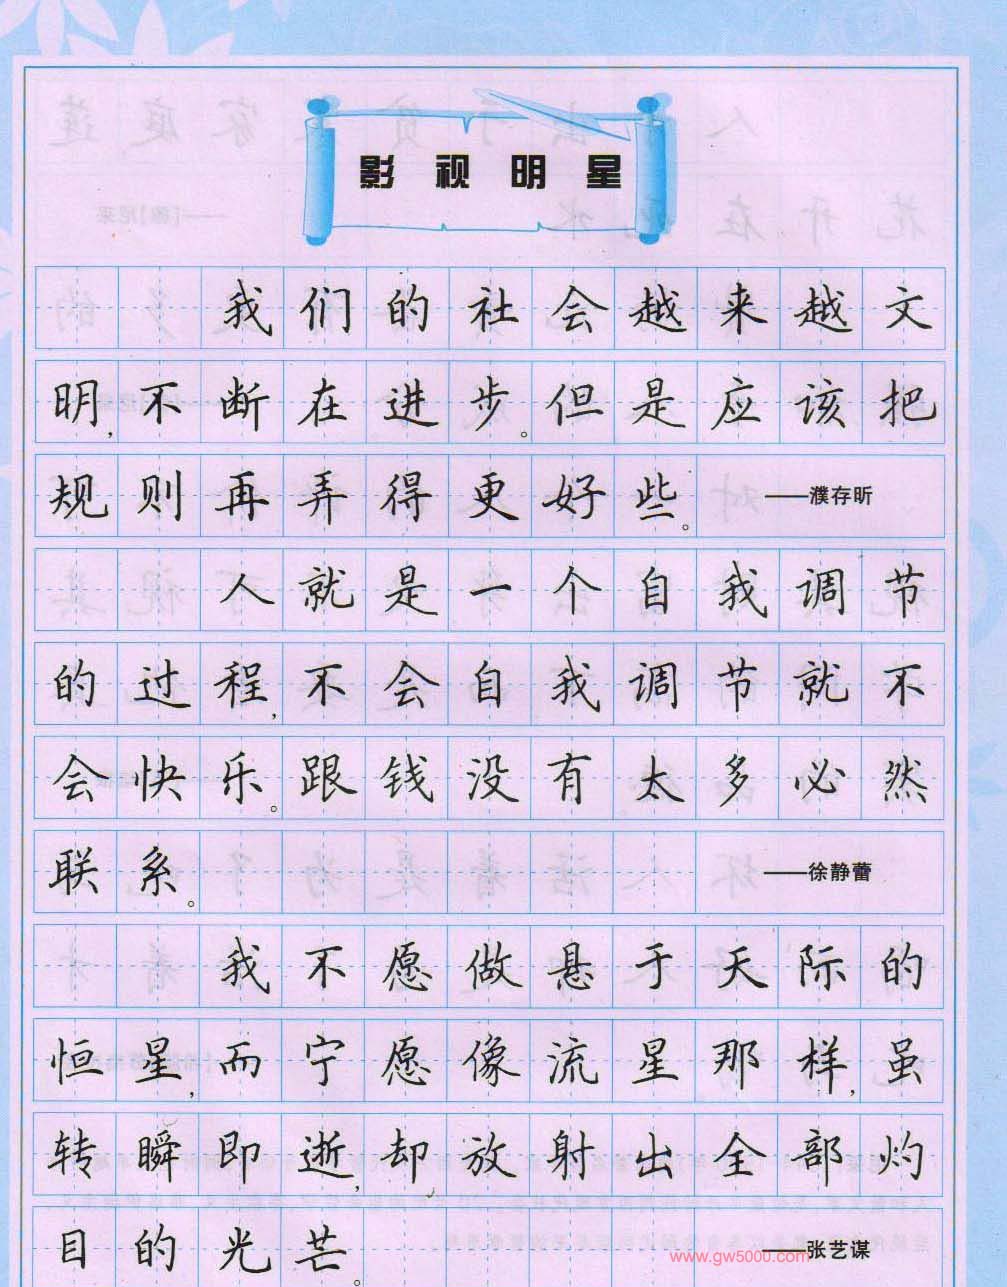 影视明星
我们的社会越来越文
明,不断在进步。但是应该把
规则再弄得更好些。 ——濮存昕
人就是一个自我调节
的过程,不会自我调节就不
会快乐。跟钱没有太多必然
联系。 ——徐静蕾
我不愿做悬于天际的
恒星,而宁愿像流星那样,虽
转瞬即逝,却放射出全部灼
目的光芒。 ——张艺谋
www.gw5000.com